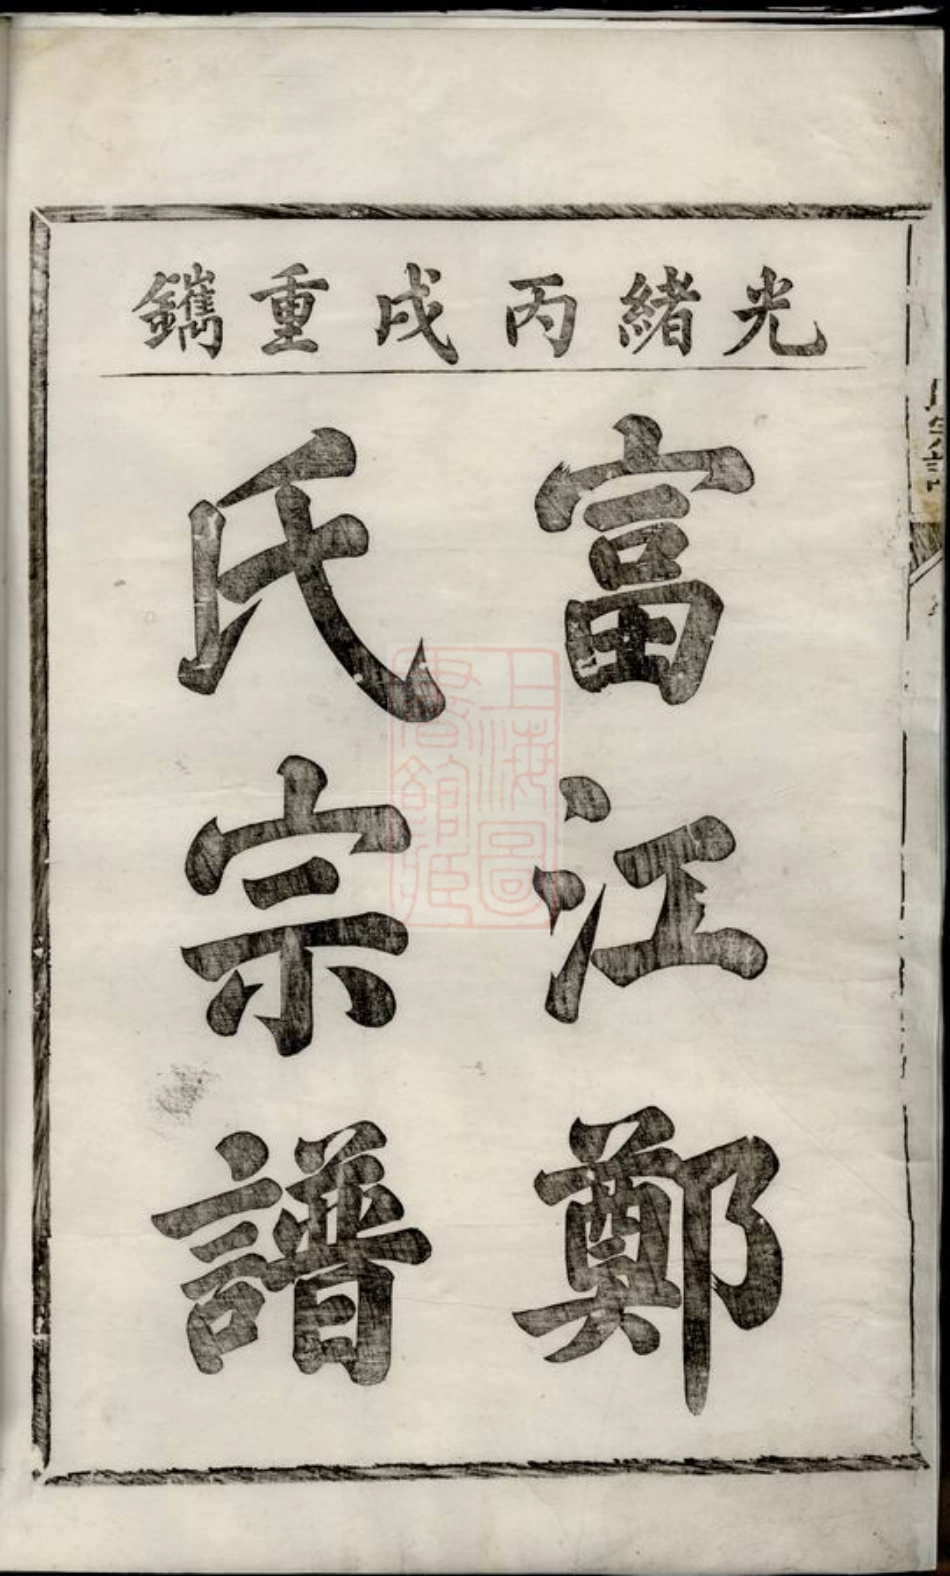 光緒丙戌重鐫
富江鄭
氏宗譜
上海圖
書館藏